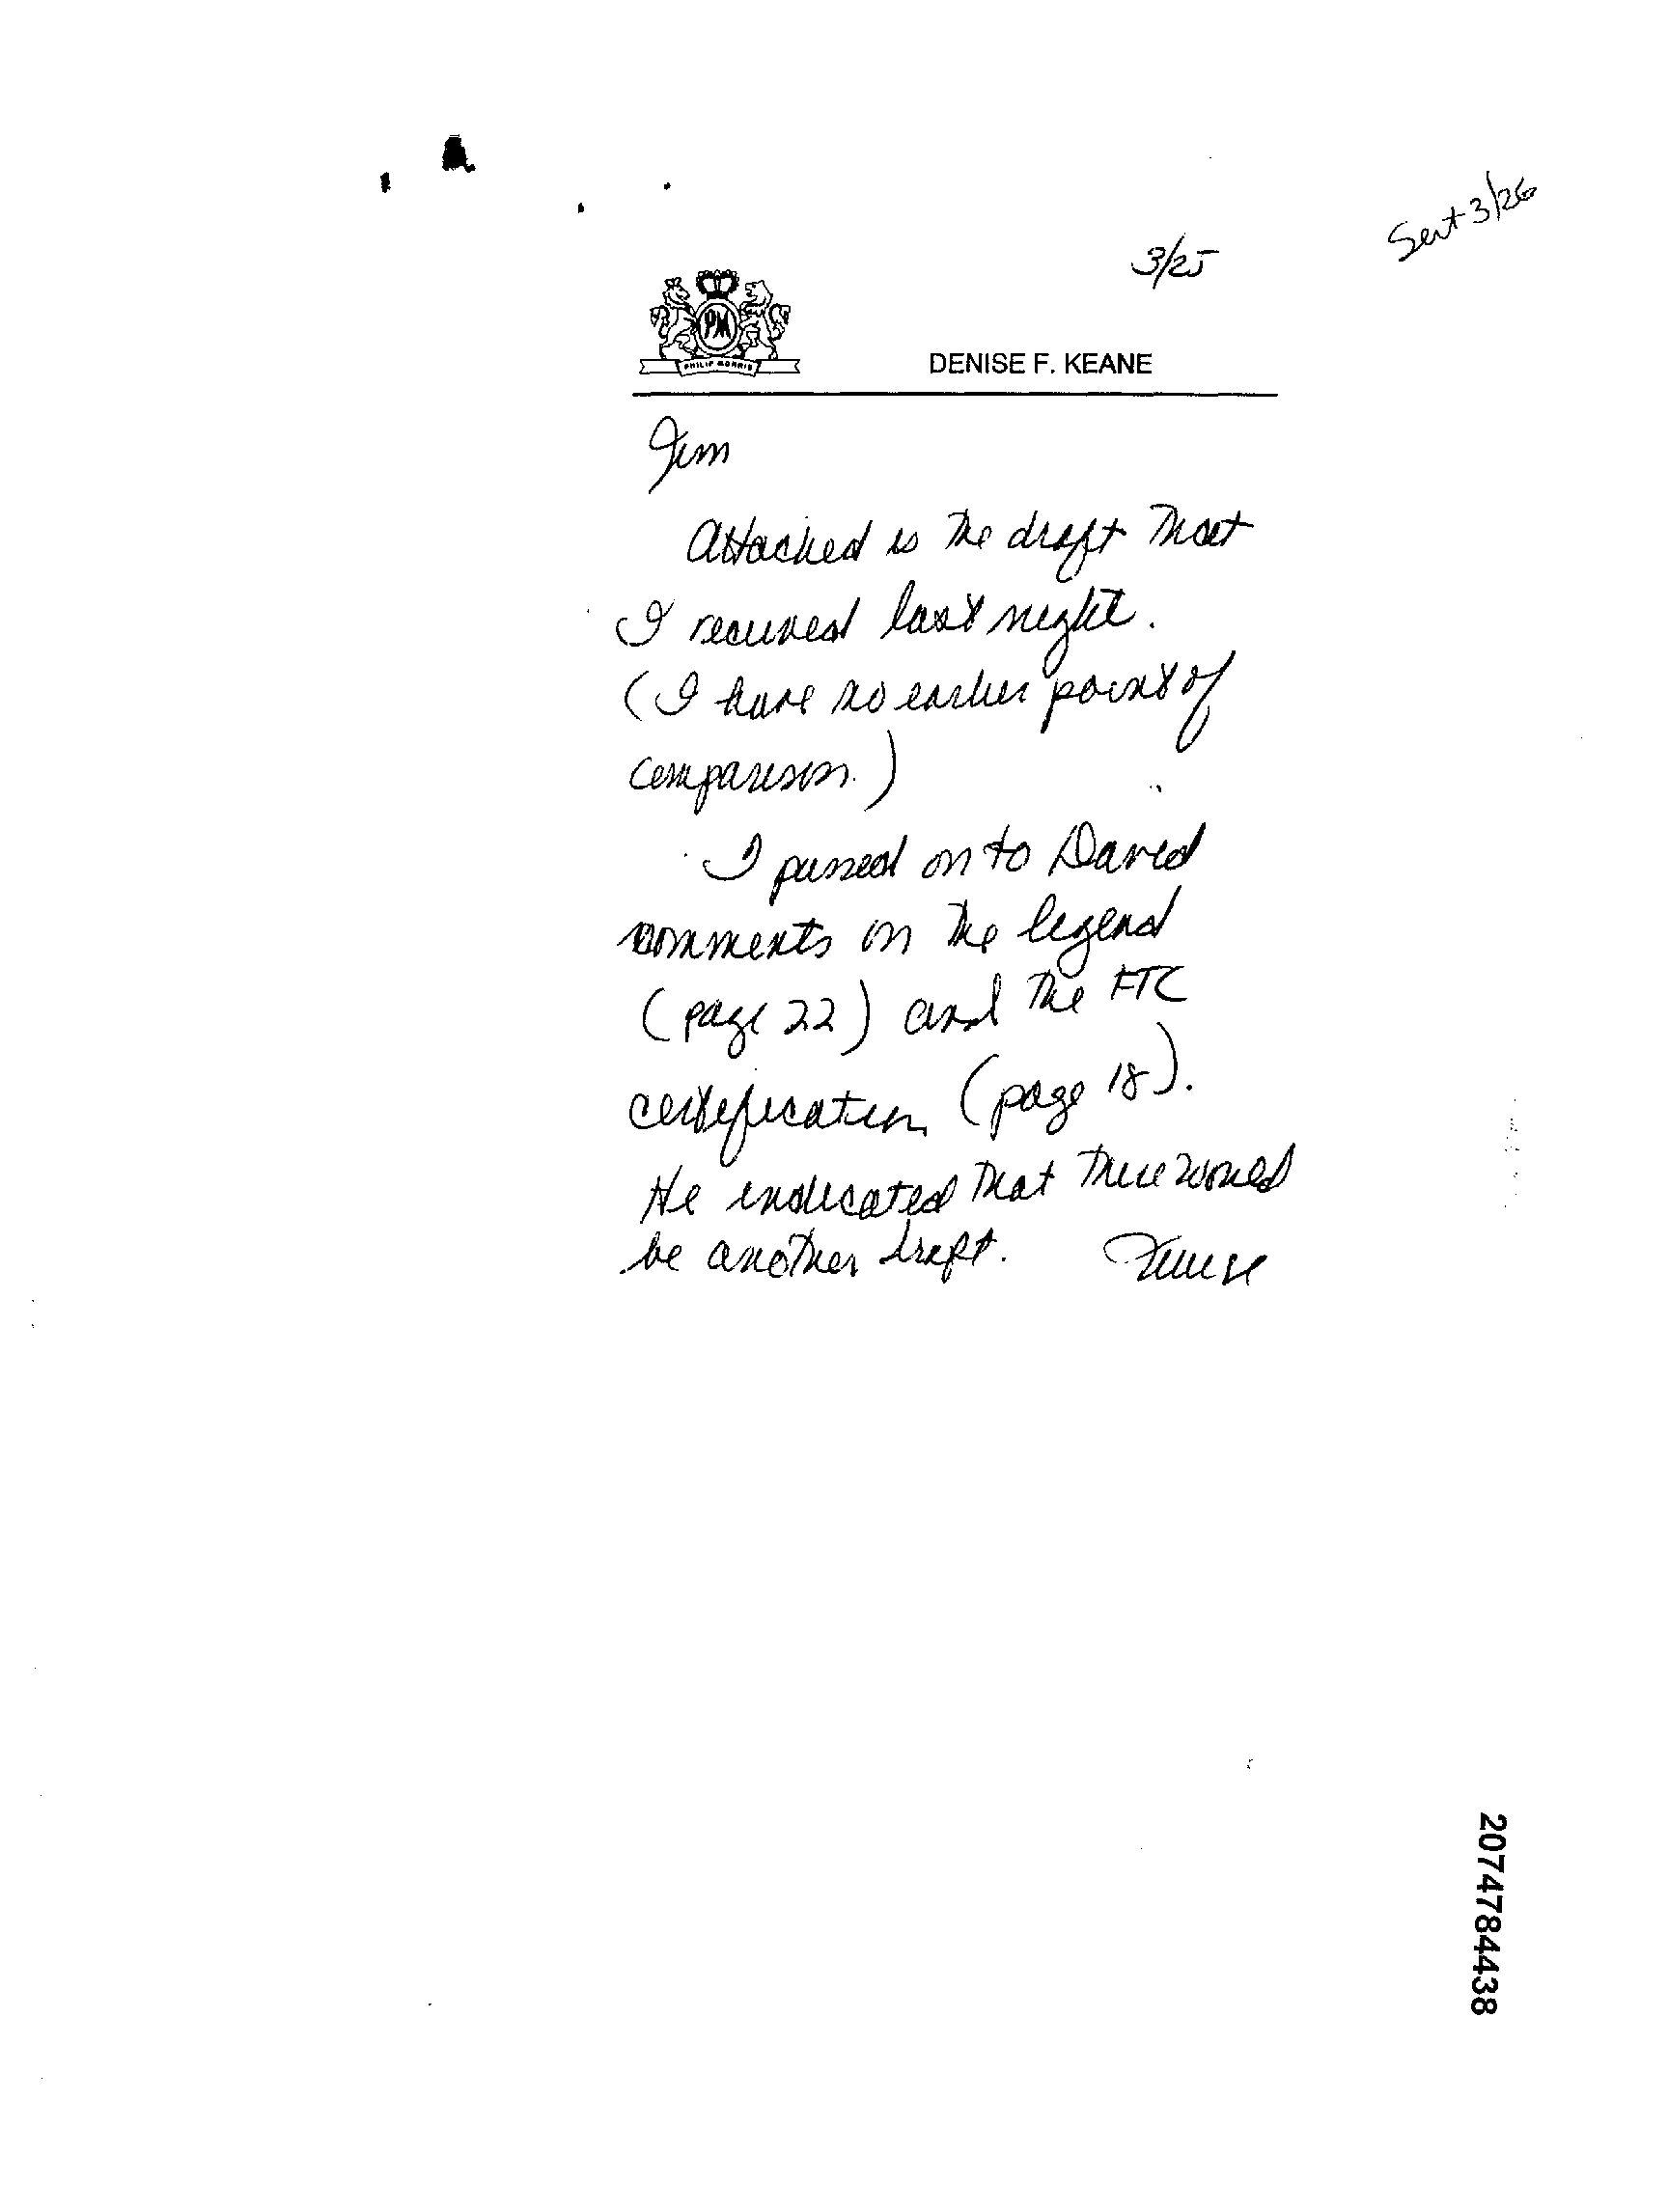 Sent 3/26
3/25
PM
PHILIP MORRIS
DENISE F. KEANE
Jim
Attached is the draft that
I received last night.
(I have no earlier point of
comparison.)
I passed on to David
comments on the legend
(page 22) and the FTC
certification (page 18).
He indicated that there would
be another draft. Denise
2074784438